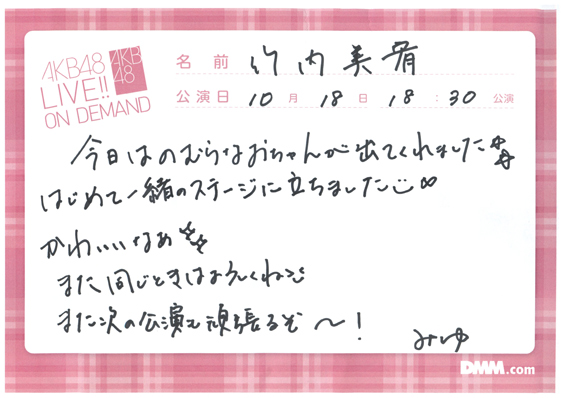 AKB48
LIVE!!
ON DEMAND
AKB
48
名前 竹内美宥
公演日 10月18日18:30公演
今日はのむらなおちゃんが出てくれました
はじめて一緒のステージに立ちました
かわいいなあ
また同じときはよろしくね
また次の公演も頑張るぞ〜!
みゆ
DMM.com